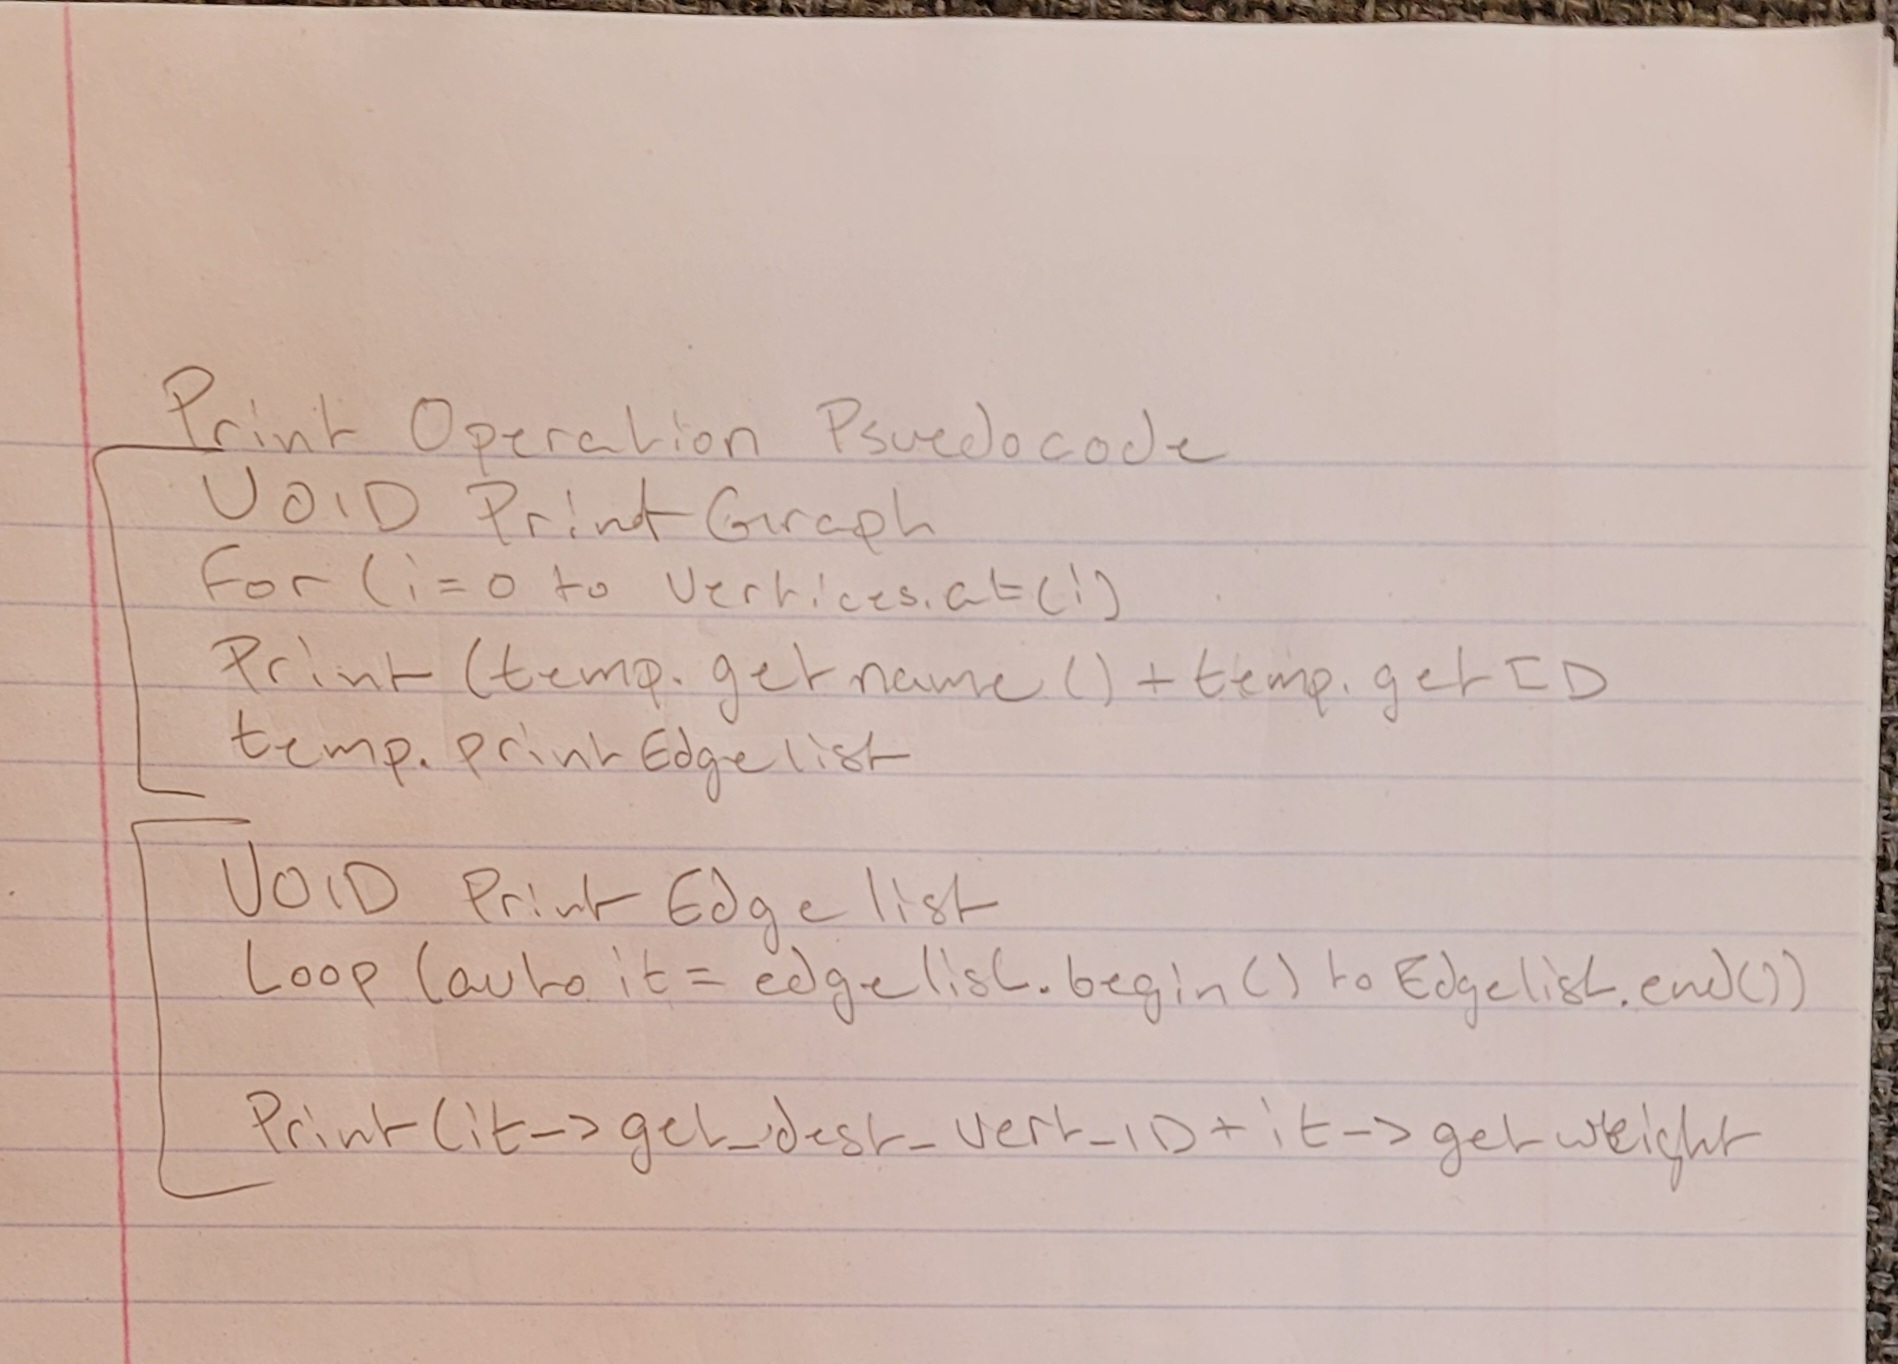 Print Operation Psuedocode
VOID Print Graph
For (i=0 to Vertices.at(i)
Print (temp.getname() + temp.getID
temp.printEdgelist
VOID Print Edge list
Loop (auto it = edgelist.begin() to Edgelist.end())
Print(it->get_dest_vert_ID + it->getweight